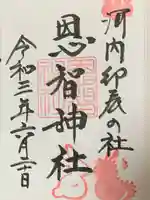 河内卯辰の社
恩智神社
令和三年六月二日